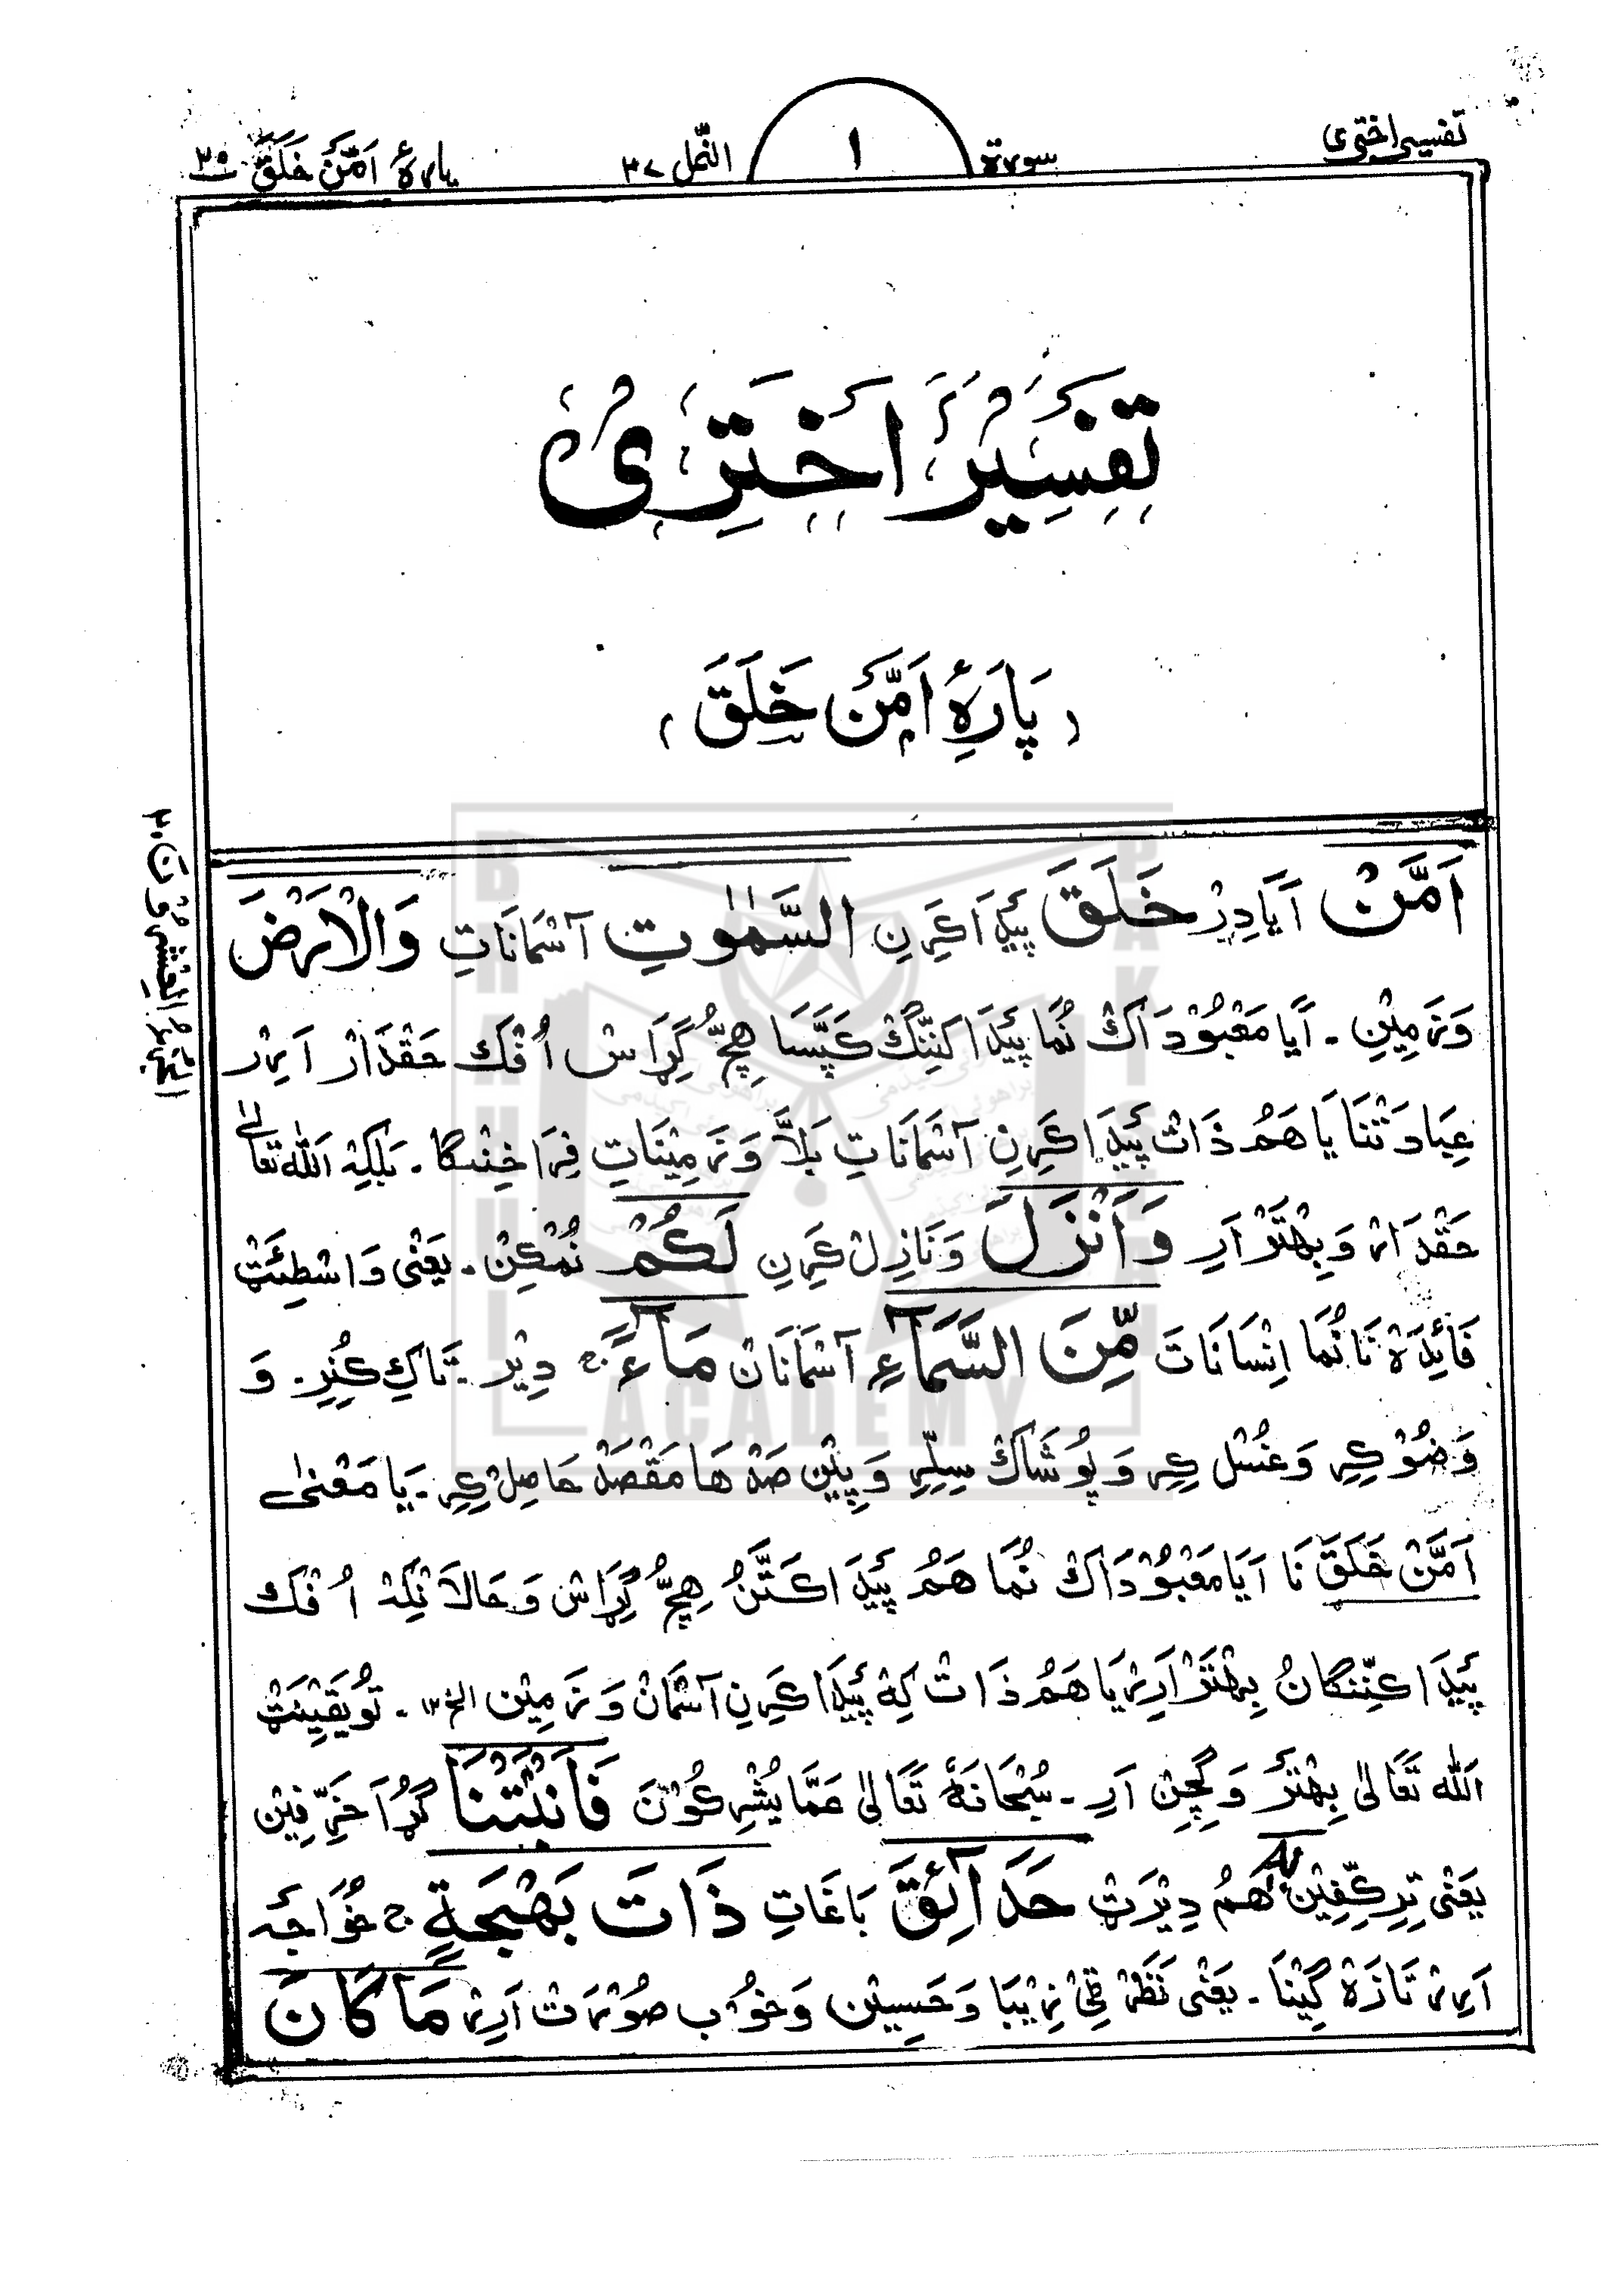 تفسیر اختری
سورۃ
۱
النّمل ۲۷
پارۂ اَمَّنْ خَلَقَ ۲۰
تَفْسِیْرِ اَخْتَرِیْ
(پَارَۂِ اَمَّنْ خَلَقَ)
اَلْجُزْءُ الْعِشْرُوْنَ ۲۰
اَمَّنْ اَیَا دِرْ خَلَقَ پَیْدَا کَرِنِ السَّمٰوٰتِ آسْمَانَاتِ وَالْاَرْضَ
وَ زَمِیْنِ ۔ اَیَا مَعْبُوْدَاکْ نُمَا پَیْدَا کَنِنْگْ کَپَّسَا ہِچُّ گِڑَاسْ اُفْکْ حَقْدَارْ اَرِیْر
عِبَادَتْنَا یَا ہَمُ ذَاتْ پَیْدَا کَرِنِ آسْمَانَاتِ بَلَّا وَ زَمِیْنَاتِ فِرَاخِنْگَا ۔ بَلْکِہْ اَللّٰہ تَعَالٰی
حَقْدَارْ وَ بِہْتَرْ اَرِ وَاَنْزَلَ وَ نَازِلْ کَرِنِ لَکُمْ نُمْکِنْ ۔ یَعْنِیْ وَاسْطِئَتْ
فَائِدَہْ نَا نُمَا اِنْسَانَاتَ مِّنَ السَّمَآءِ آسْمَانَانْ مَآءً ج دِیْر ۔ تَاکِ کُنِرِ ۔ وَ
وَضُوْ کِرِ وَ غُسْل کِرِ وَ پُوْشَاکْ سِلِّرِ وَ پِیْنْ صَدْہَا مَقْصَدْ حَاصِلْ کِرِ ۔ یَا مَعْنٰی
اَمَّنْ خَلَقَ نَا اَیَا مَعْبُوْدَاکْ نُمَا ہَمُ پَیْدَا کَتَّنُ ہِچُّ گِڑَاسْ وَ حَالَانْکِہْ اُفْکْ
پَیْدَا کَنِنْگَانُ بِہْتَرْ اَرِیْر یَا ہَمُ ذَاتْ کِہْ پَیْدَا کَرِنِ آسْمَانْ وَ زَمِیْن الخ ۔ تَو یَقِیْنَتْ
اَللّٰہ تَعَالٰی بِہْتَرْ وَ گِچِنْ اَرِ ۔ سُبْحَانَہٗ تَعَالٰی عَمَّا یُشْرِکُوْنَ فَاَنْۢبَتْنَا گُڑَا خَرِّفِیْن
یَعْنِیْ تِرِکِّفِیْنْ بِہٖ ہَمُ دِیْرَتْ حَدَآئِقَ بَاغَاتِ ذَاتَ بَھْجَۃٍ ج خُوَاجَہ
اَرِیْر تَازَہْ گِیْنَا ۔ یَعْنِیْ نَظَرْ ٹِیْ زِیْبَا وَ حَسِیْن وَ خُوْب صُوْرَتْ اَرِیْر مَا کَانَ